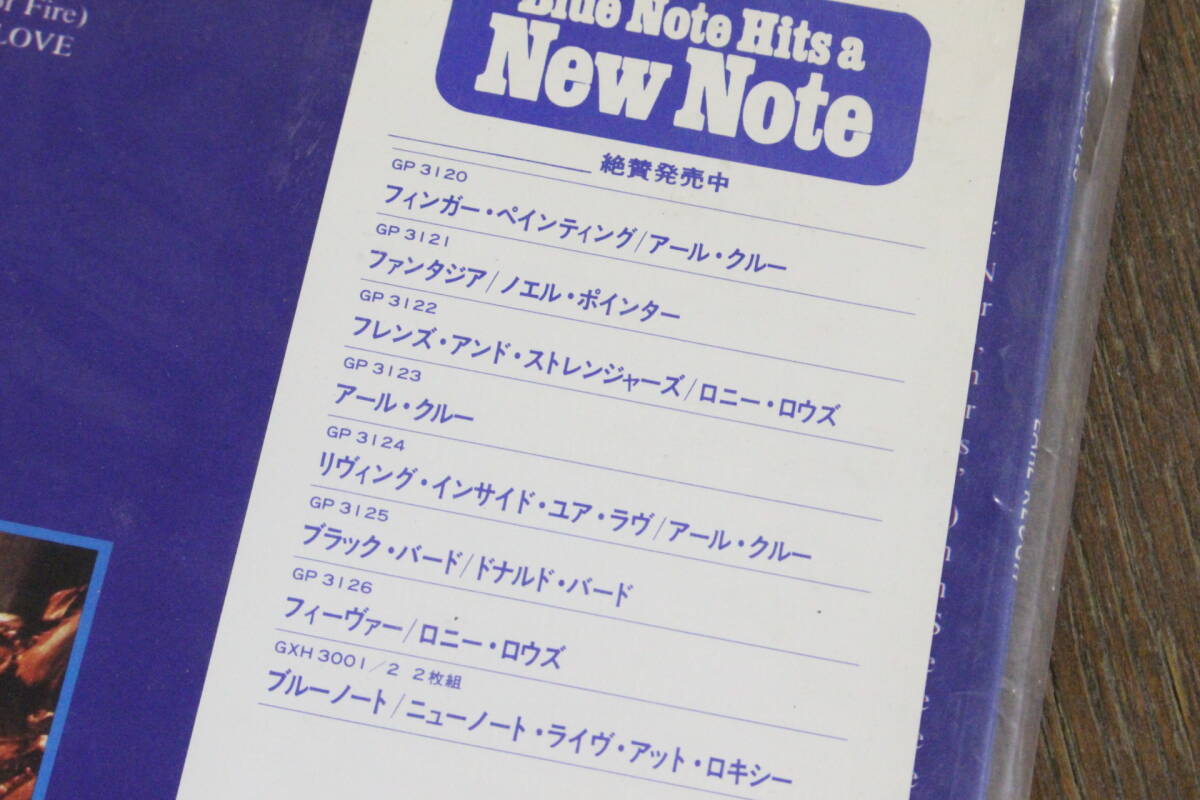 of Fire)
LOVE
Blue Note Hits a
New Note
絶賛発売中
GP 3120
フィンガー・ペインティング/アール・クルー
GP 3121
ファンタジア/ノエル・ポインター
GP 3122
フレンズ・アンド・ストレンジャーズ/ロニー・ロウズ
GP 3123
アール・クルー
GP 3124
リヴィング・インサイド・ユア・ラヴ/アール・クルー
GP 3125
ブラック・バード/ドナルド・バード
GP 3126
フィーヴァー/ロニー・ロウズ
GXH 3001/2 2枚組
ブルーノート/ニューノート・ライヴ・アット・ロキシー